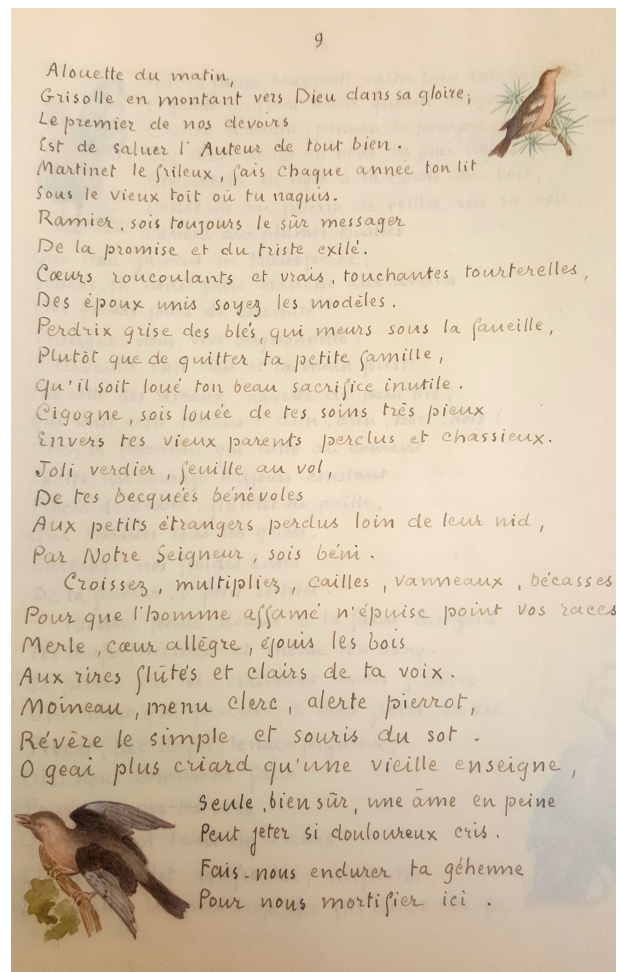 9
Alouette du matin,
Grisolle en montant vers Dieu dans sa gloire;
Le premier de nos devoirs
Est de saluer l'Auteur de tout bien.
Martinet le frileux, fais chaque année ton lit
Sous le vieux toît où tu naquis.
Ramier, sois toujours le sûr messager
De la promise et du triste exilé.
Cœurs roucoulants et vrais, touchantes tourterelles,
Des époux unis soyez les modèles.
Perdrix grise des blés, qui meurs sous la faueille,
Plutôt que de quitter ta petite famille,
Qu'il soit loué ton beau sacrifice inutile.
Cigogne, sois louée de tes soins très pieux
Envers tes vieux parents perclus et chassieux.
Joli verdier, feuille au vol,
De tes becquées bénévoles
Aux petits étrangers perdus loin de leur nid,
Par Notre Seigneur, sois béni.
Croissez, multipliez, cailles, vanneaux, bécasses
Pour que l'homme affamé n'épuise point vos races
Merle, cœur allègre, éjouis les bois
Aux rires flûtés et clairs de ta voix.
Moineau, menu clerc, alerte pierrot,
Révère le simple et souris du sot.
O geai plus criard qu'une vieille enseigne,
Seule, bien sûr, une âme en peine
Peut jeter si douloureux cris.
Fais-nous endurer ta géhenne
Pour nous mortifier ici.